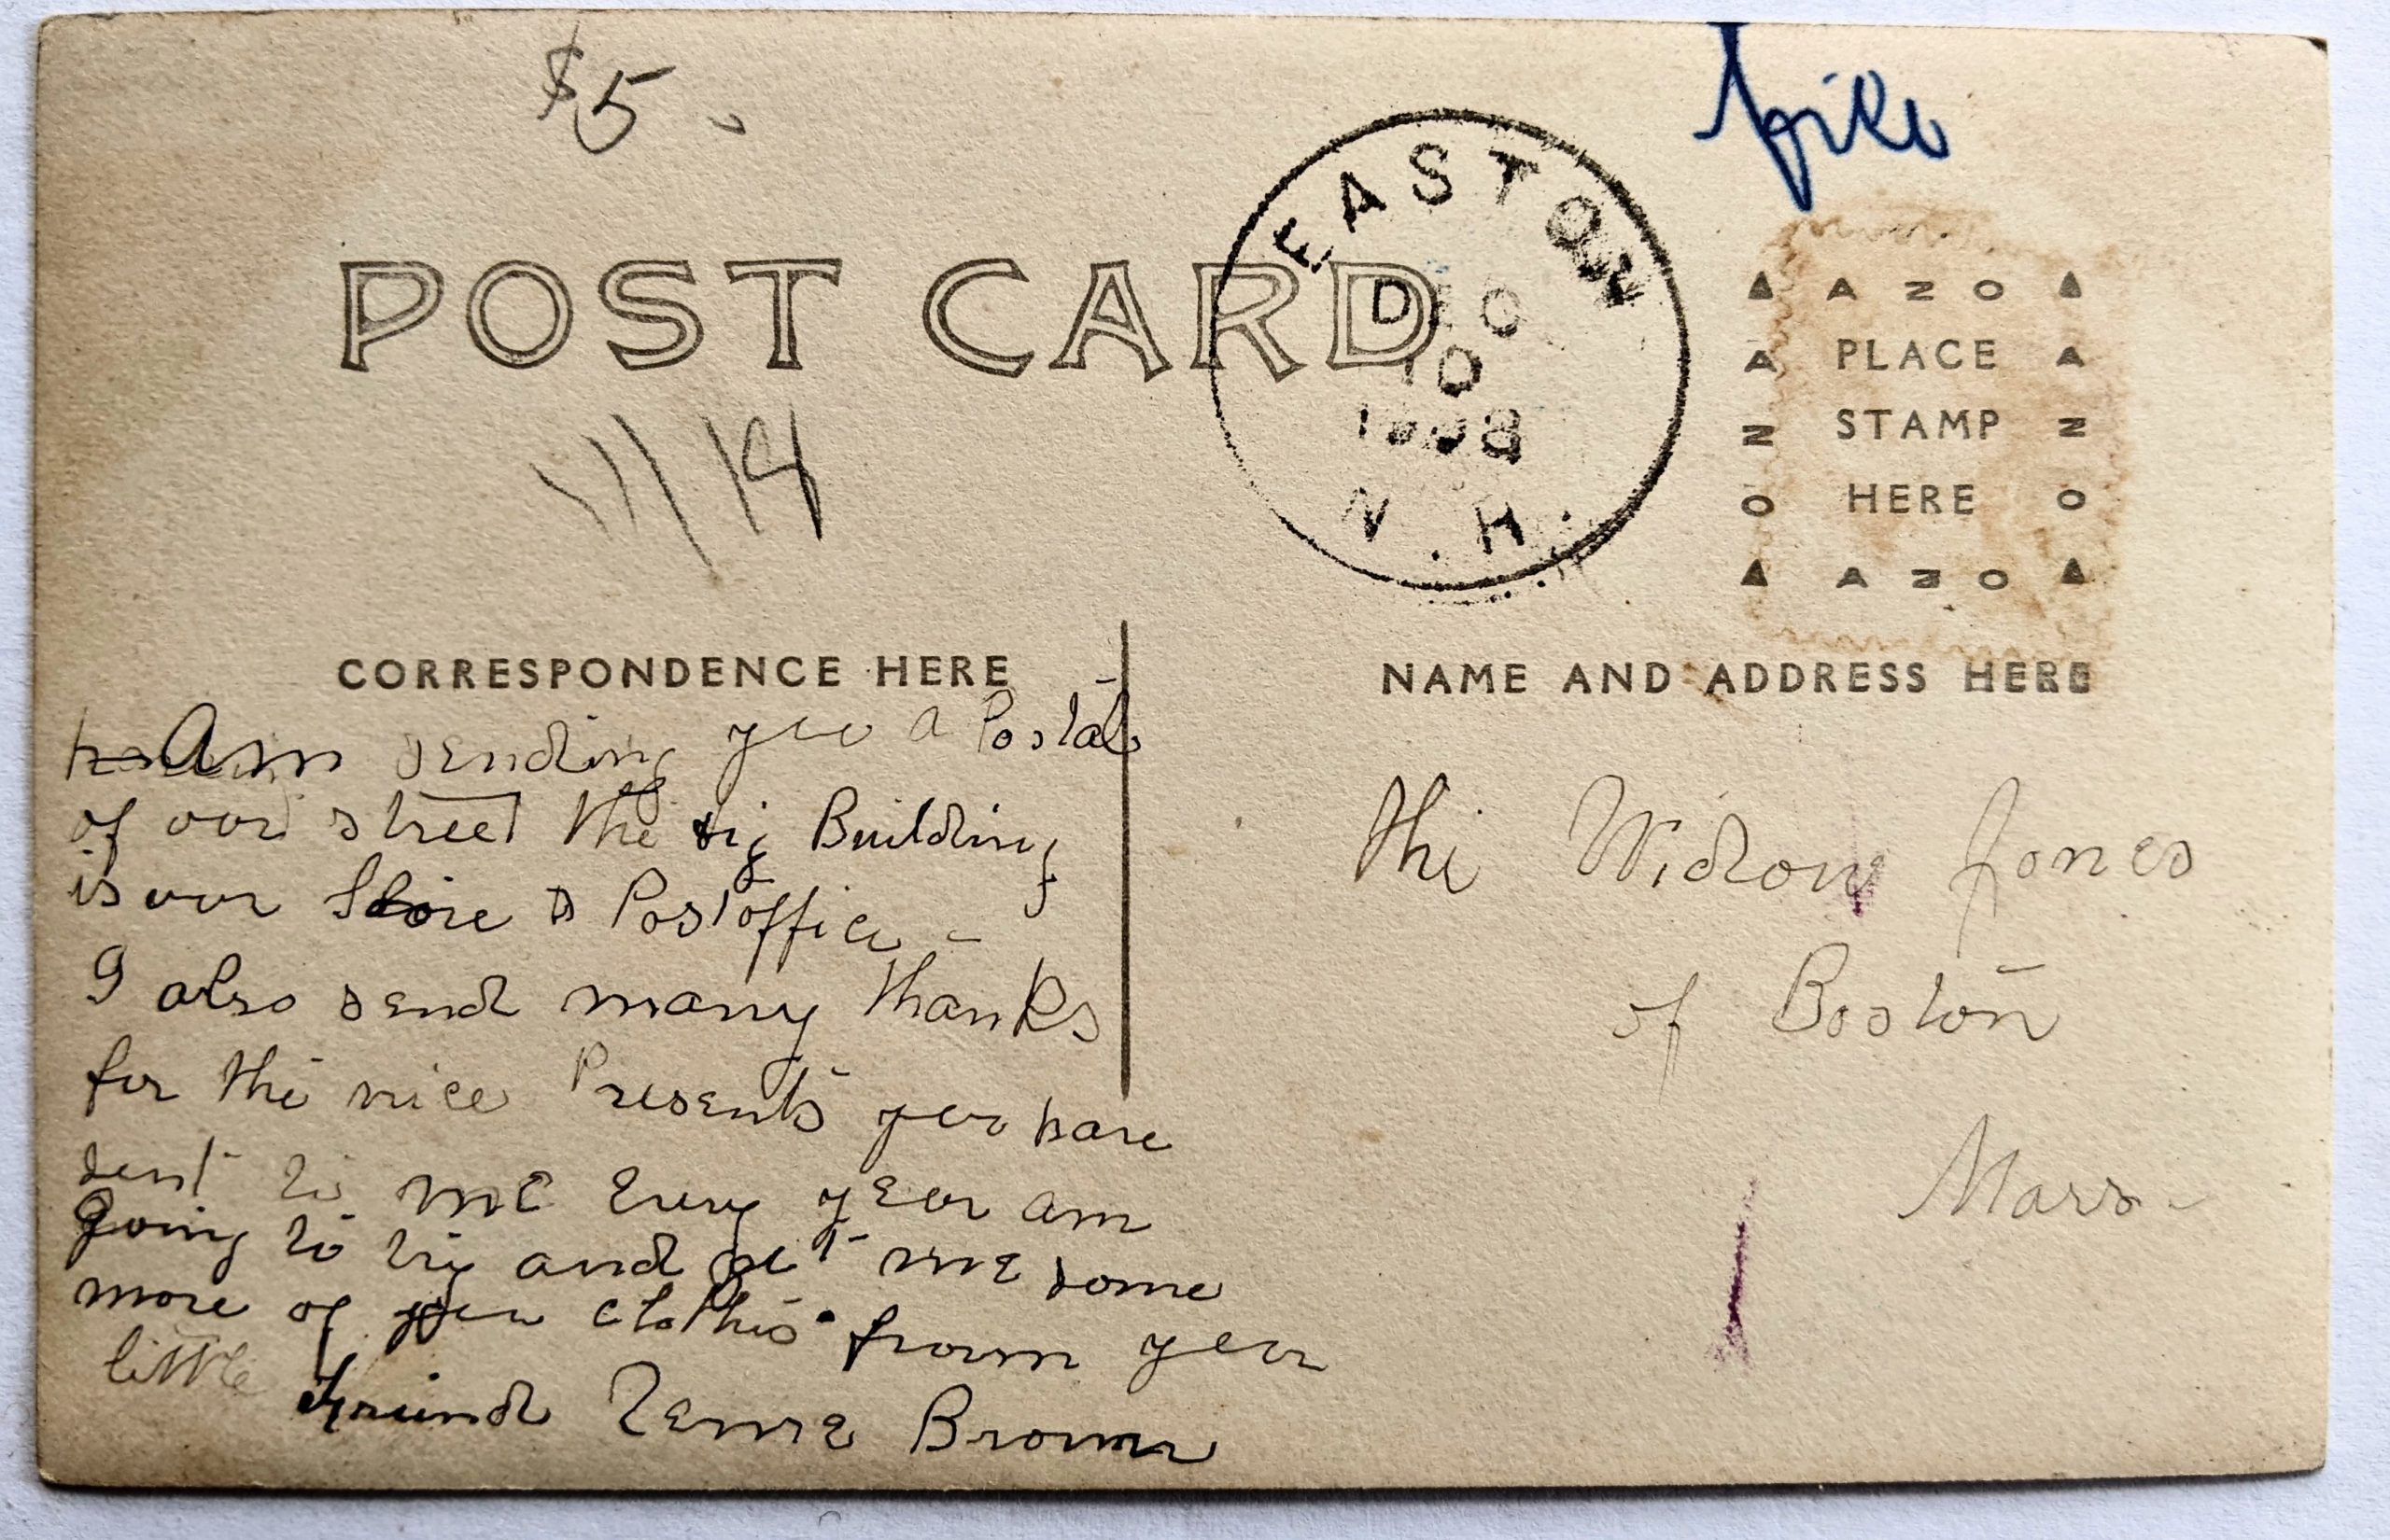 $5.
POST CARD
EASTON
DEC
10
N.H.
AZO
PLACE
STAMP
HERE
AZO
CORRESPONDENCE HERE
NAME AND ADDRESS HERE
Am sending you a Postal
of our street the big Building
is our Store & Postoffice
I also send many thanks
for the nice Presents you have
sent to me Every year am
going to try and get me some
more of your clothes from your
little Freind Brown
the Widow Jones
of Boston
Mass-